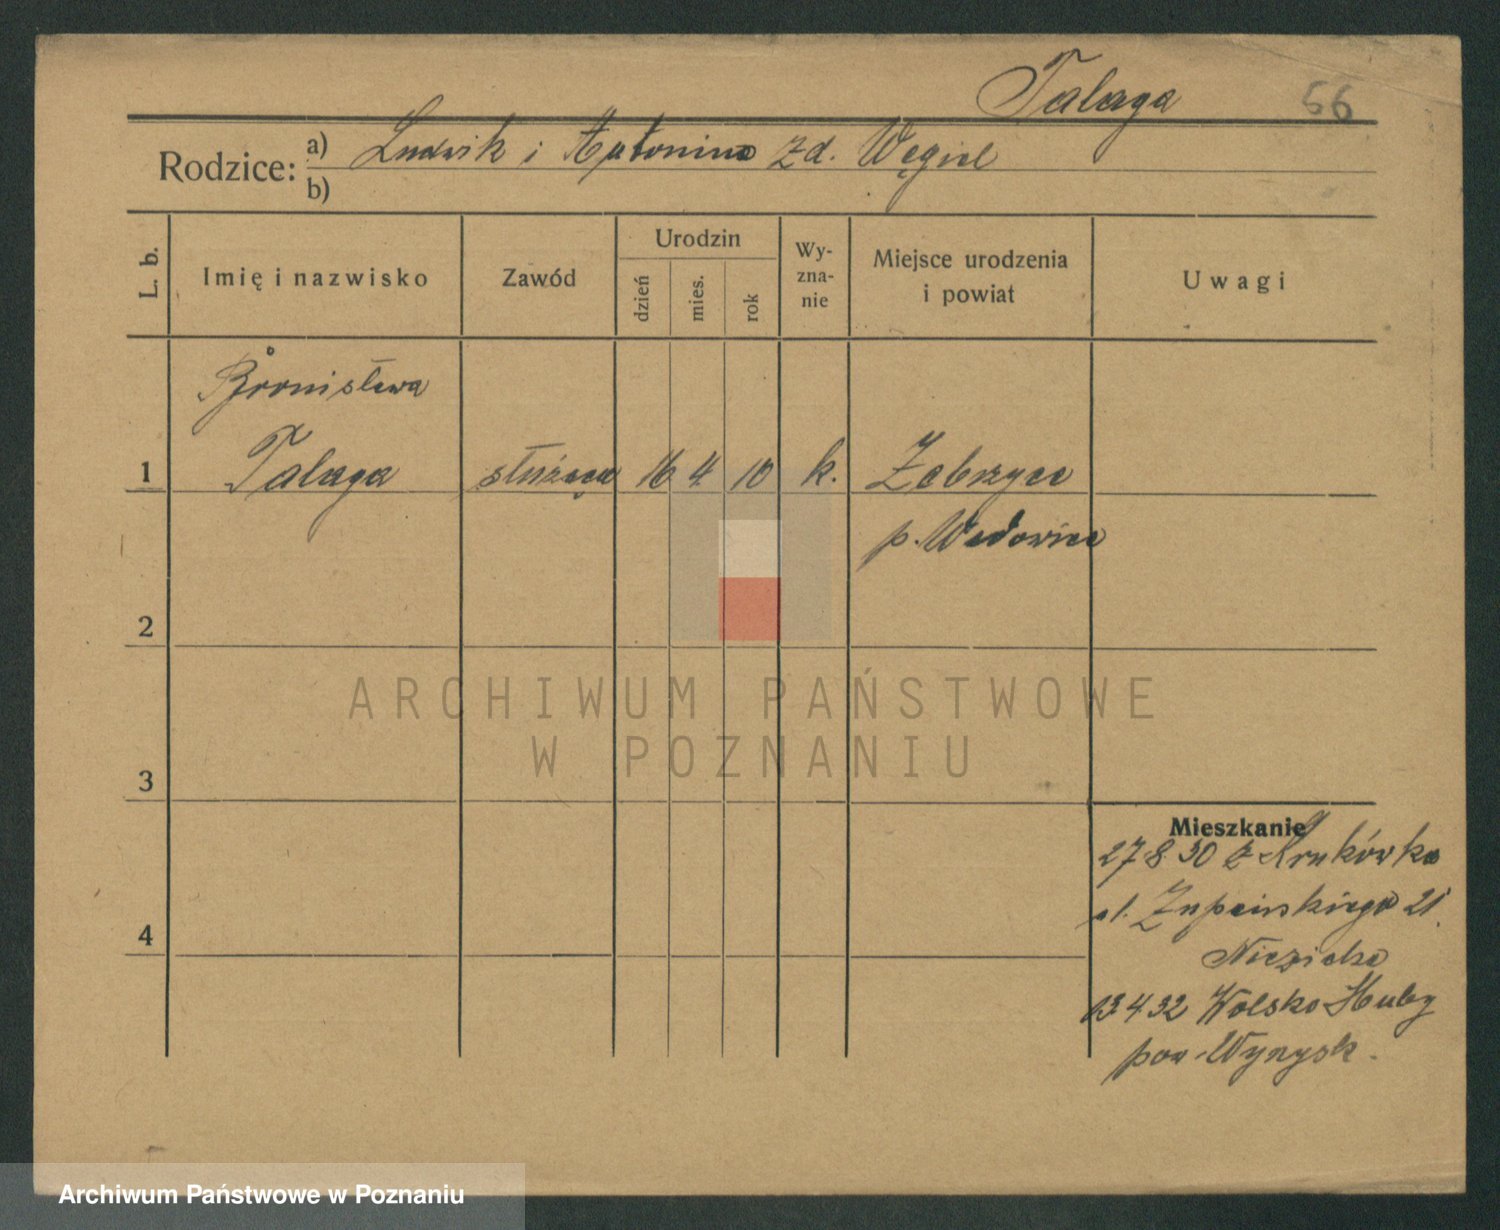 Talaga 56
Rodzice: a) Ludwik i Antonina zd. Węgiel
b)
L. b.
Imię i nazwisko
Zawód
Urodzin
dzień
mies.
rok
Wy-
zna-
nie
Miejsce urodzenia
i powiat
Uwagi
Bronisława
1 Talaga służąca 16 4 10 k. Zebrzyce
p. Wadowice
2
ARCHIWUM PAŃSTWOWE
W POZNANIU
3
Mieszkanie
27 8 30 z Krukówka
ul. Żupańskiego 21
4
13 4 32 Wolsko Huby
pow. Wyrzysk.
Archiwum Państwowe w Poznaniu